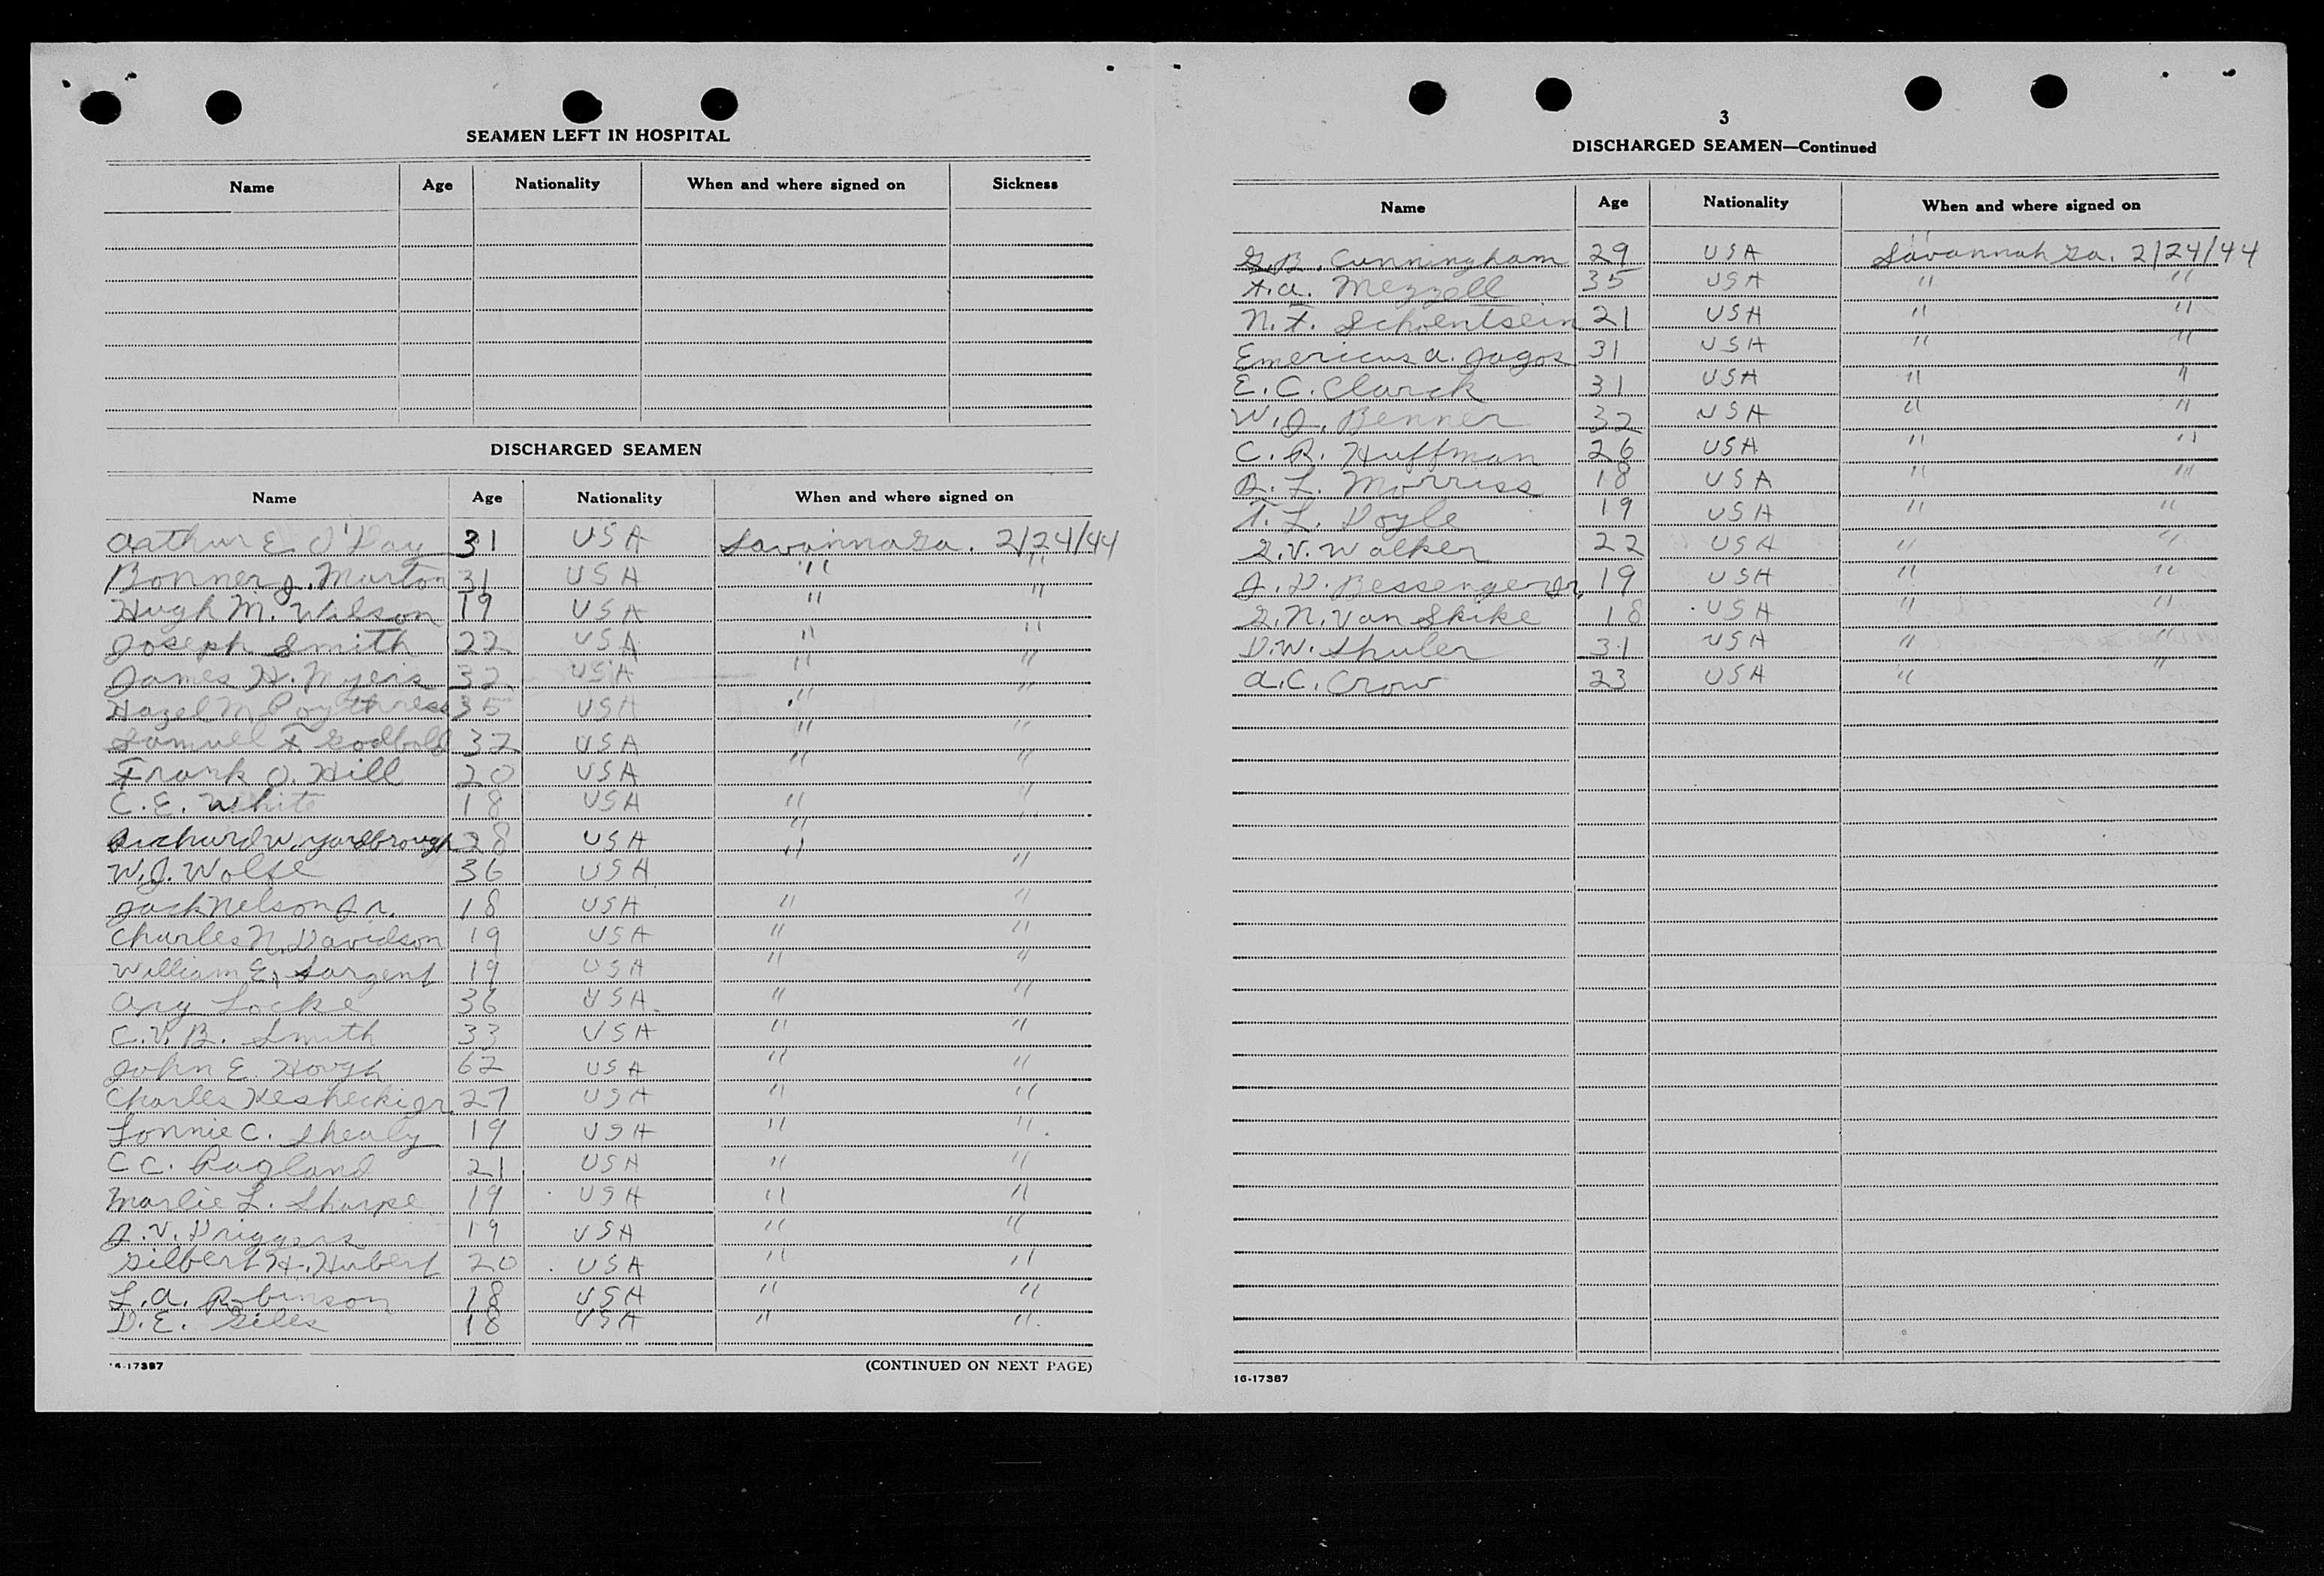 SEAMEN LEFT IN HOSPITAL
Name Age Nationality When and where signed on Sickness
DISCHARGED SEAMEN
Name Age Nationality When and where signed on
Arthur E. O'Day 31 USA Savanna Ga. 2/24/44
Bonner J. Marton 31 USA " "
Hugh M. Wilson 19 USA " "
Joseph Smith 22 USA " "
James H. Myers 32 USA " "
Hazel M Poythress 35 USA " "
Samuel F Godbold 32 USA " "
Frank O. Hill 20 USA " "
C. E. White 18 USA " "
Richard W. Yardbrough 28 USA "
W. J. Wolfe 36 USA " "
Jack Nelson Jr. 18 USA " "
Charles N. Davidson 19 USA " "
William E. Sargent 19 USA " "
Ary Locke 36 USA " "
C. V. B. Smith 33 USA " "
John E. Hough 62 USA " "
Charles Keshecki Jr 27 USA " "
Lonnie C. Shealy 19 USA " "
C C. Ragland 21 USA " "
Marlie L. Sharpe 19 USA " "
J. V. Driggers 19 USA " "
Gilbert H. Hubert 20 USA " "
L. A. Robinson 18 USA " "
D. E. Giles 18 USA " "
16-17387 (CONTINUED ON NEXT PAGE)
3
DISCHARGED SEAMEN—Continued
Name Age Nationality When and where signed on
G. B. Cunningham 29 USA Savannah Ga. 2/24/44
F. A. Mezzell 35 USA " "
N. F. Schoentsein 21 USA " "
Emericus A. Jagos 31 USA " "
E. C. Clarck 31 USA " "
W. J. Benner 32 USA " "
C. R. Huffman 26 USA " "
R. L. Morriss 18 USA " "
T. L. Doyle 19 USA " "
G. V. Walker 22 USA " "
J. D. Bessenger Jr. 19 USA " "
G. N. Van Skike 18 USA " "
D. W. Shuler 31 USA " "
A. C. Crow 23 USA " "
16-17387